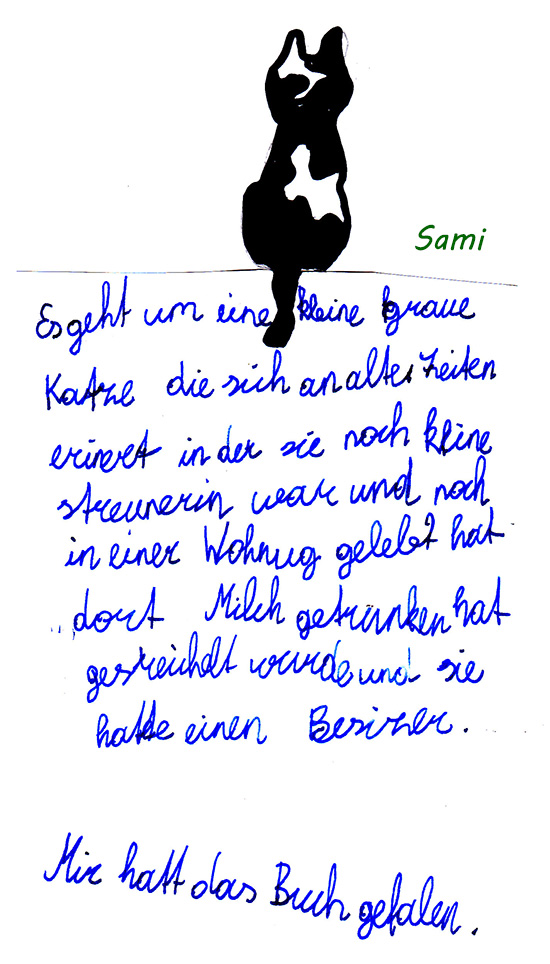 Sami
Es geht um eine kleine graue
Katze die sich an alte Zeiten
erinert in der sie noch kleine
streunerin war und noch
in einer Wohnug gelebt hat
dort Milch getrunken hat
gestreichelt wurde und sie
hatte einen Besizer.
Mir hatt das Buch gefalen.